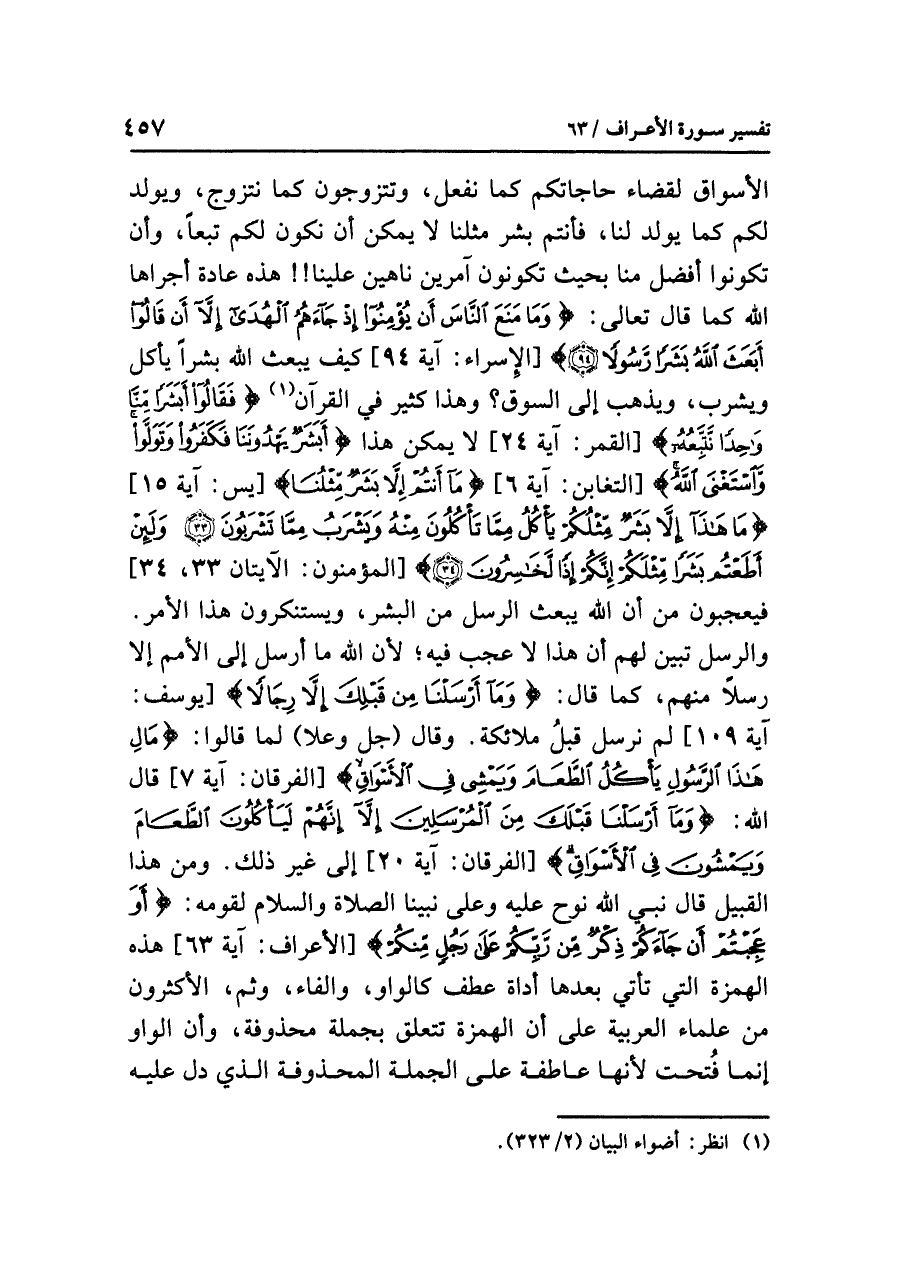 تفسير سورة الأعراف / ٦٣ ٤٥٧
الأسواق لقضاء حاجاتكم كما نفعل، وتتزوجون كما نتزوج، ويولد
لكم كما يولد لنا، فأنتم بشر مثلنا لا يمكن أن نكون لكم تبعاً، وأن
تكونوا أفضل منا بحيث تكونون آمرين ناهين علينا!! هذه عادة أجراها
الله كما قال تعالى: ﴿ وَمَا مَنَعَ ٱلنَّاسَ أَن يُؤْمِنُوٓا۟ إِذْ جَآءَهُمُ ٱلْهُدَىٰٓ إِلَّآ أَن قَالُوٓا۟
أَبَعَثَ ٱللَّهُ بَشَرًا رَّسُولًا ٩٤﴾ [الإسراء: آية ٩٤] كيف يبعث الله بشراً يأكل
ويشرب، ويذهب إلى السوق؟ وهذا كثير في القرآن(١) ﴿ فَقَالُوٓا۟ أَبَشَرًا مِّنَّا
وَٰحِدًا نَّتَّبِعُهُۥٓ﴾ [القمر: آية ٢٤] لا يمكن هذا ﴿ أَبَشَرٌ يَهْدُونَنَا فَكَفَرُوا۟ وَتَوَلَّوا۟ۚ
وَّٱسْتَغْنَى ٱللَّهُۚ﴾ [التغابن: آية ٦] ﴿ مَآ أَنتُمْ إِلَّا بَشَرٌ مِّثْلُنَا﴾ [يس: آية ١٥]
﴿ مَا هَٰذَآ إِلَّا بَشَرٌ مِّثْلُكُمْ يَأْكُلُ مِمَّا تَأْكُلُونَ مِنْهُ وَيَشْرَبُ مِمَّا تَشْرَبُونَ ٣٣ وَلَئِنْ
أَطَعْتُم بَشَرًا مِّثْلَكُمْ إِنَّكُمْ إِذًا لَّخَٰسِرُونَ ٣٤﴾ [المؤمنون: الآيتان ٣٣، ٣٤]
فيعجبون من أن الله يبعث الرسل من البشر، ويستنكرون هذا الأمر.
والرسل تبين لهم أن هذا لا عجب فيه؛ لأن الله ما أرسل إلى الأمم إلا
رسلاً منهم، كما قال: ﴿ وَمَآ أَرْسَلْنَا مِن قَبْلِكَ إِلَّا رِجَالًا﴾ [يوسف:
آية ١٠٩] لم نرسل قبلُ ملائكة. وقال (جل وعلا) لما قالوا: ﴿مَالِ
هَٰذَا ٱلرَّسُولِ يَأْكُلُ ٱلطَّعَامَ وَيَمْشِى فِى ٱلْأَسْوَاقِۙ﴾ [الفرقان: آية ٧] قال
الله: ﴿وَمَآ أَرْسَلْنَا قَبْلَكَ مِنَ ٱلْمُرْسَلِينَ إِلَّآ إِنَّهُمْ لَيَأْكُلُونَ ٱلطَّعَامَ
وَيَمْشُونَ فِى ٱلْأَسْوَاقِۗ﴾ [الفرقان: آية ٢٠] إلى غير ذلك. ومن هذا
القبيل قال نبي الله نوح عليه وعلى نبينا الصلاة والسلام لقومه: ﴿ أَوَ
عَجِبْتُمْ أَن جَآءَكُمْ ذِكْرٌ مِّن رَّبِّكُمْ عَلَىٰ رَجُلٍ مِّنكُمْ﴾ [الأعراف: آية ٦٣] هذه
الهمزة التي تأتي بعدها أداة عطف كالواو، والفاء، وثم، الأكثرون
من علماء العربية على أن الهمزة تتعلق بجملة محذوفة، وأن الواو
إنما فُتحت لأنها عاطفة على الجملة المحذوفة الذي دل عليه
(١) انظر: أضواء البيان (٢/ ٣٢٣).